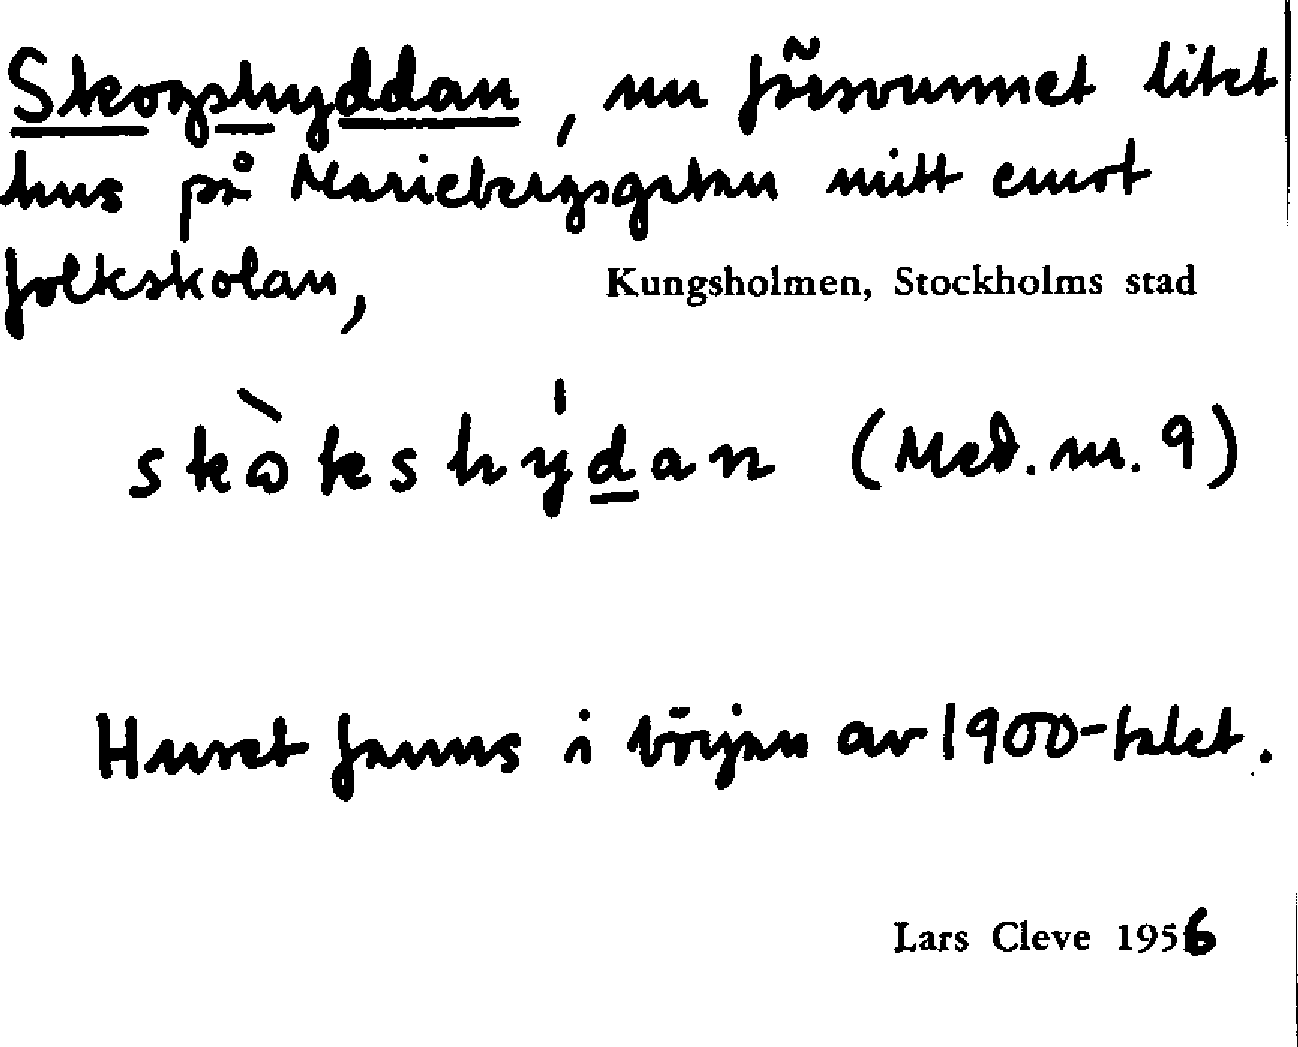 Skogshyddan, nu försvunnet litet
hus på Mariebergsgatan mitt emot
folkskolan, Kungsholmen, Stockholms stad
skòkshy̍dan (Med. nr. 9)
Huset fanns i början av 1900-talet.
Lars Cleve 1956